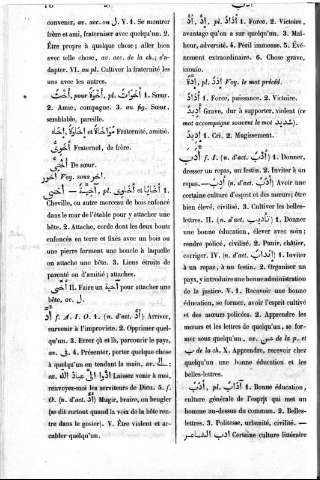 convenir, av. acc. ou ل. V. 1. Se montrer
frère et ami, fraterniser avec quelqu'un. 2.
Être propre à quelque chose; aller bien
avec telle chose, av. acc. de la ch.; s'a-
dapter. VI. au pl. Cultiver la fraternité les
uns avec les autres.
أُخْتٌ, pour أَخْوَةٌ, pl. أَخَوَاتٌ 1. Sœur.
2. Amie, compagne. 3. au fig. Sœur,
semblable, pareille.
إِخَاءٌ, أُخُوَّةٌ et مُوَاخَاةٌ Fraternité, amitié.
أَخَوِيٌّ Fraternel, de frère.
أُخْتِيٌّ De sœur.
Voy. sous آخر.
1. أَخَايَا et أَخَاوِي pl. أَخِيَّةٌ — آخِيَةٌ
Cheville, ou autre morceau de bois enfoncé
dans le mur de l'étable pour y attacher une
bête. 2. Attache, corde dont les deux bouts
enfoncés en terre et fixés avec un bois ou
une pierre forment une boucle à laquelle
on attache une bête. 3. Liens étroits de
parenté ou d'amitié; attaches.
أَخَّى II. Faire un أخية pour attacher une
bête, av. ل.
أَدَّ f. A. I. O. 1. (n. d'act. أَدٌّ) Arriver,
survenir à l'improviste. 2. Opprimer quel-
qu'un. 3. Errer çà et là, parcourir le pays,
av. فى. 4. Présenter, porter quelque chose
à quelqu'un en tendant la main, av.
ادّوا الى عباد الله Laissez venir à moi,
renvoyez-moi les serviteurs de Dieu. 5. f.
O. (n. d'act. أَدٌّ) Mugir, braire, ou beugler
(se dit surtout quand la voix de la bête ren-
tre dans le gosier). V. Être violent et ac-
cabler quelqu'un.
إِدٌّ, أَدٌّ pl. إِدَادٌ 1. Force. 2. Victoire,
avantage qu'on a sur quelqu'un. 3. Mal-
heur, adversité. 4. Péril immense. 5. Évé-
nement extraordinaire. 6. Chose grave,
inouïe.
إِدَّةٌ pl. إِدَدٌ Voy. le mot précéd.
أَدَادٌ 1. Force, puissance. 2. Victoire.
أَدِيدٌ Grave, dur à supporter, violent (ce
mot accompagne souvent le mot شديد).
1. Cri. 2. Mugissement.
أَدَبَ f. I. (n. d'act. أَدْبٌ) 1. Donner,
dresser un repas, un festin. 2. Inviter à un
repas. — أَدُبَ (n. d'act. أَدَبٌ) Avoir une
certaine culture d'esprit et des mœurs; être
bien élevé, civilisé. 3. Cultiver les belles-
lettres. II. (n. d'act. تأديب) 1. Donner
une bonne éducation, élever avec soin;
rendre policé, civilisé. 2. Punir, châtier,
corriger. IV. (n. d'act. إيداب) 1. Inviter
à un repas, à un festin. 2. Organiser un
pays, y introduire une bonne administration
de la justice. V. 1. Recevoir une bonne
éducation, se former, avoir l'esprit cultivé
et des mœurs policées. 2. Apprendre les
mœurs et les lettres de quelqu'un, se for-
mer sous quelqu'un, av. من de la p. et
ب de la ch. X. Apprendre, recevoir chez
quelqu'un une bonne éducation et les
belles-lettres.
أَدَبٌ, pl. آدَابٌ 1. Bonne éducation,
culture générale de l'esprit qui met un
homme au-dessus du commun. 2. Belles-
lettres. 3. Politesse, urbanité, civilité.
ادب الشاعر Certaine culture littéraire